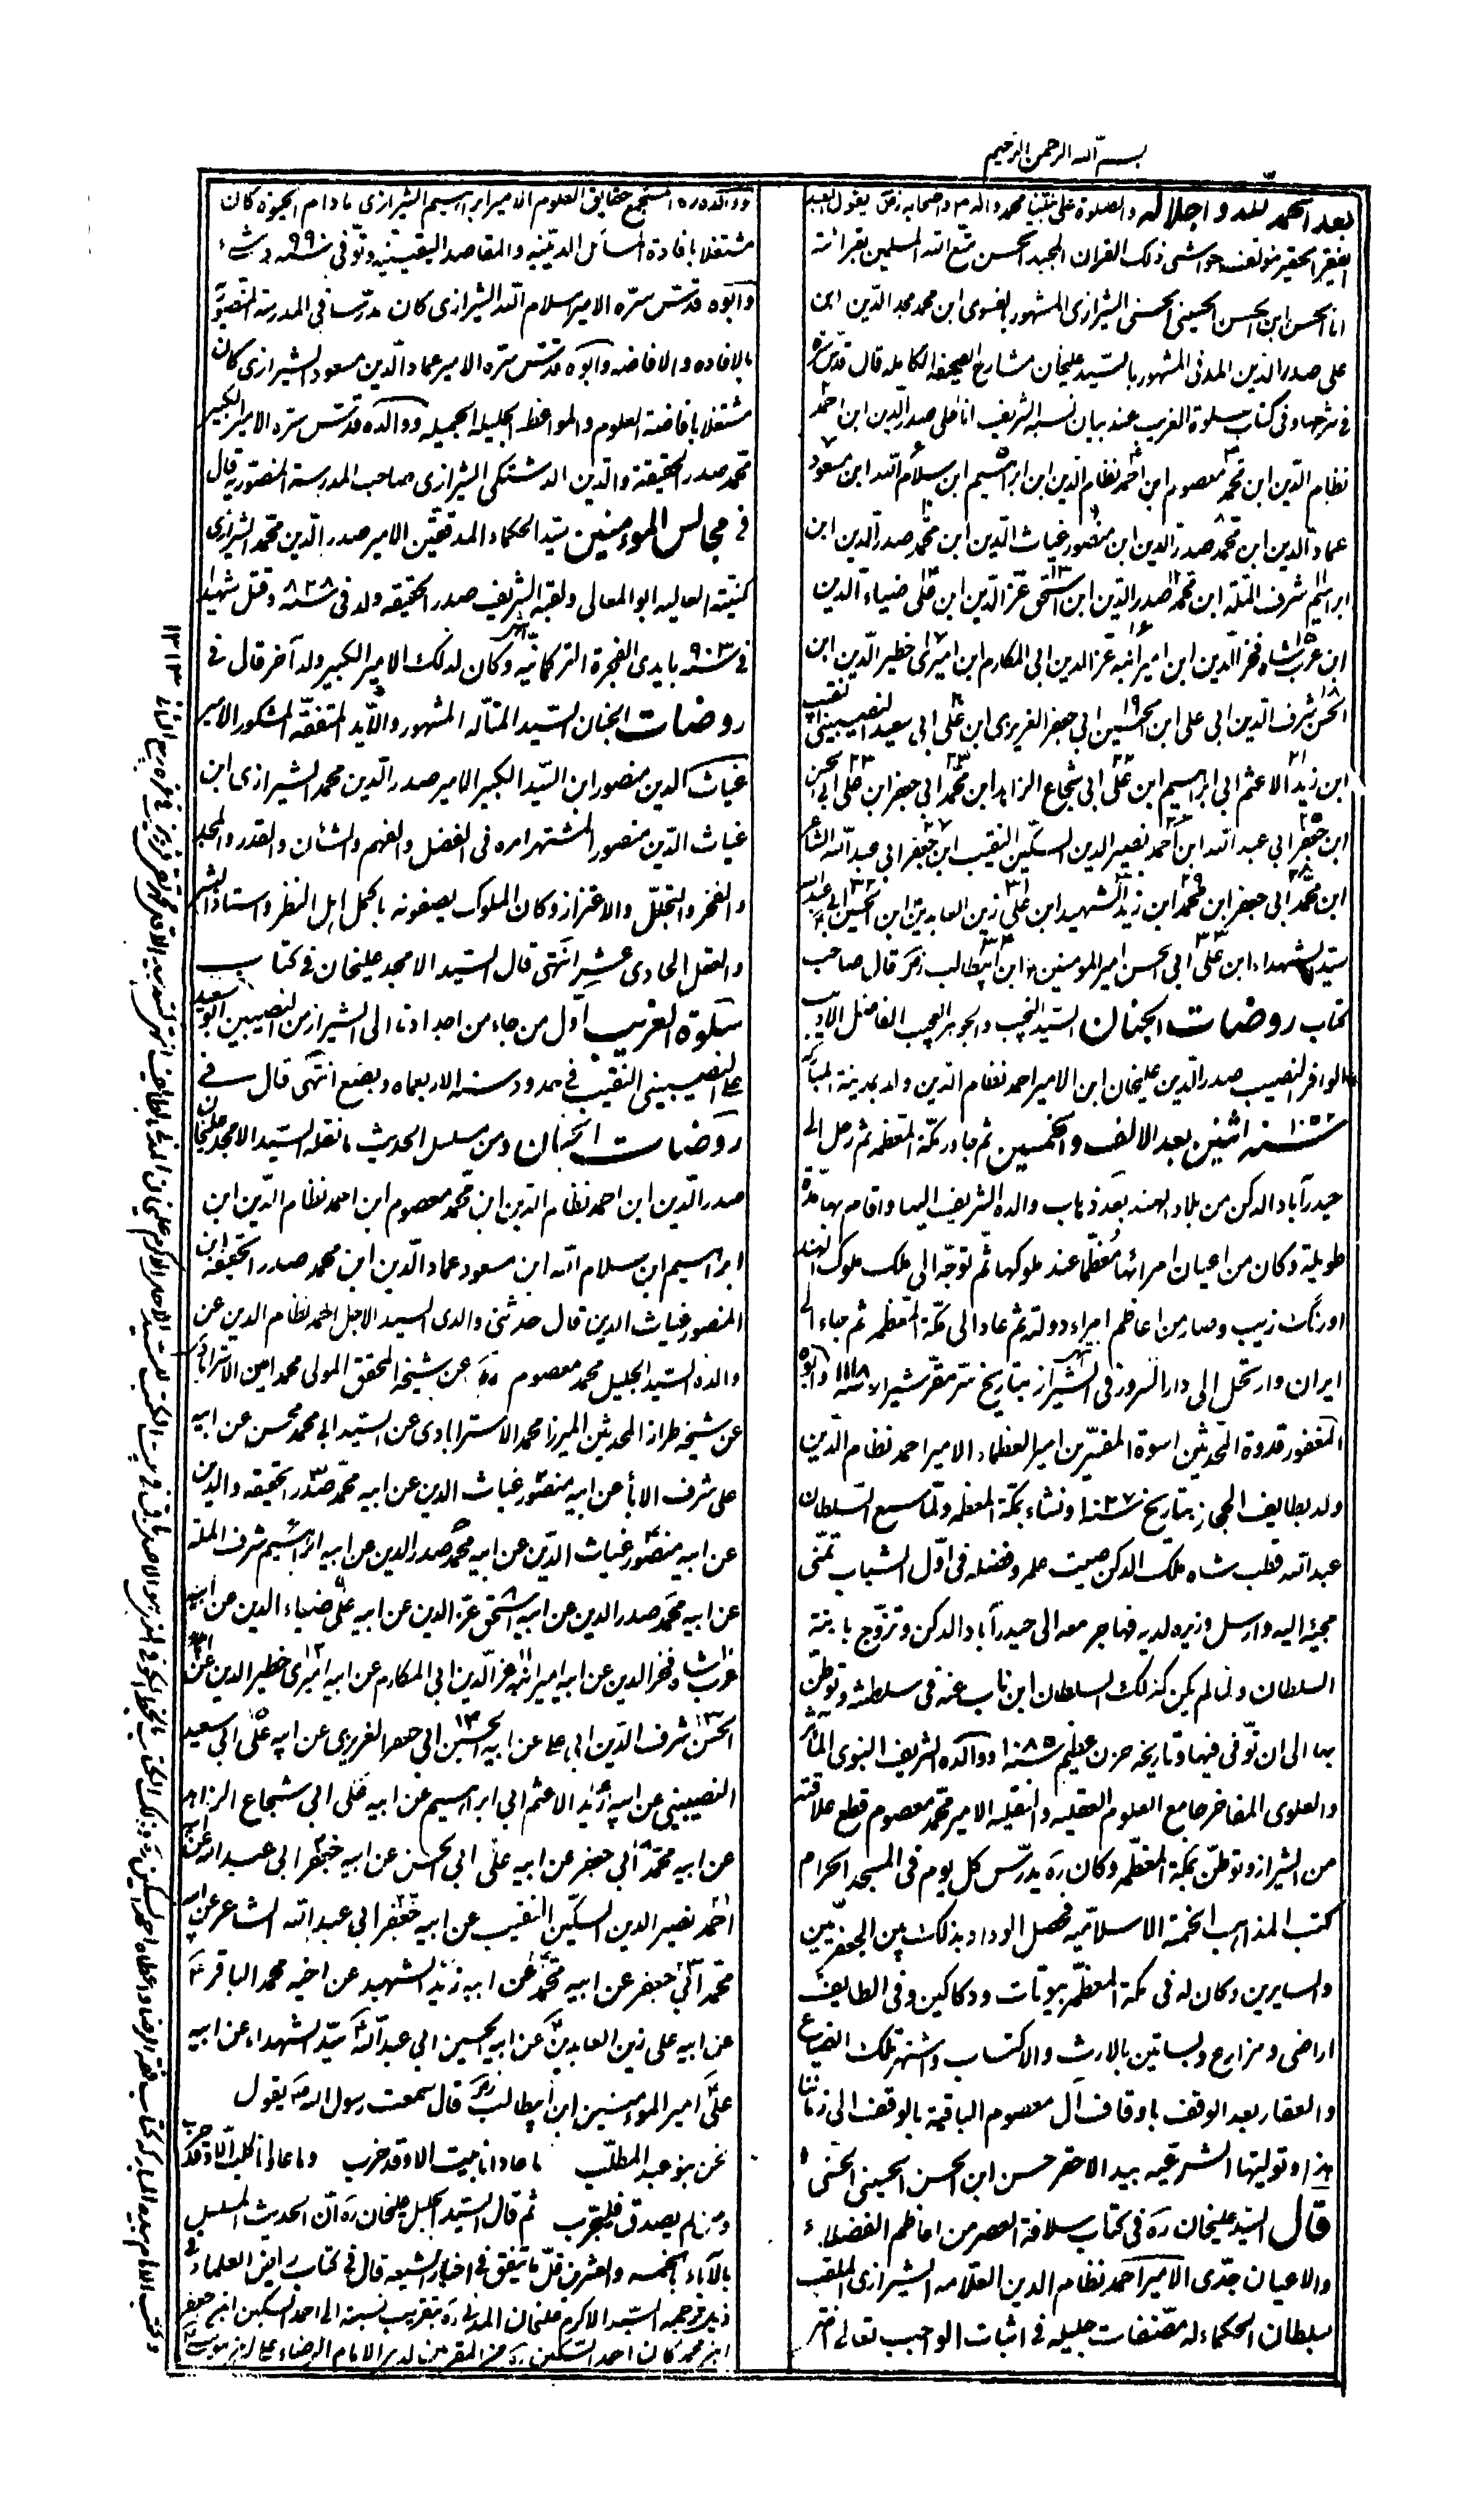 بسم الله الرحمن الرحيم
بعد الحمد لله و اجلاله والصلوة على نبينا محمد واله واصحابه يقول العبد
الفقير الحقير مؤلف حواشى ذلك القران المجيد الحسن متع الله المسلمين بقرائته
انا الحسن ابن الحسن الحسينى الحسنى الشيرازى المشهور بالفسوى ابن محمد مجد الدين ابن
على صدر الدين المدنى المشهور بالسيد عليخان شارح الصحيفه الكامله قال قدس سره
فى شرحها وفى كتاب سلوة الغريب عند بيان نسبه الشريف انا على صدر الدين ابن احمد
نظام الدين ابن محمد معصوم ابن احمد نظام الدين ابن ابراهيم ابن سلام الله ابن مسعود
عماد الدين ابن محمد صدر الدين ابن منصور غياث الدين ابن محمد صدر الدين ابن
ابراهيم شرف الملة ابن محمد صدر الدين ابن اسحق عز الدين ابن على ضياء الدين
ابن عربشاه فخر الدين ابن امير انبه عز الدين ابى المكارم ابن اميرى خطير الدين ابن
الحسن شرف الدين ابى على ابن الحسين ابى جعفر العزيزى ابن على ابى سعيد النصيبينى نقيب
ابن زيد الاعثم ابى ابراهيم ابن على ابى شجاع الزاهد ابن محمد ابى جعفر ابن على ابى الحسن
ابن جعفر ابى عبد الله ابن احمد نصير الدين السكين النقيب ابن جعفر ابى عبد الله الشاعر
ابن محمد ابى جعفر ابن محمد ابن زيد الشهيد ابن على زين العابدين ابن الحسين ابى عبد الله
سيد الشهداء ابن على ابى الحسن امير المومنين ابن ابيطالب قال صاحب
كتاب روضات الجنان السيد النجيب والجوهر العجيب الفاضل الاديب
والوافر النصيب صدر الدين عليخان ابن الامير احمد نظام الدين ولد بمدينة المباركه
١٠٥٢ سنه اثنين بعد الالف والخمسين ثم جاور مكة المعظمه ثم رحل الى
حيدر آباد الدكن من بلاد الهند بعد ذهاب والده الشريف اليها و اقام بها مدة
طويلة وكان من اعيان امرائها معظما عند ملوكها ثم توجه الى ملك ملوك الهند
اورنگ زيب وصار من اعاظم امراء دولته ثم عاد الى مكة المعظمه ثم جاء الى
ايران وارتحل الى دار السرور فى الشيراز بتاريخ سنه ١١١٨ وابوه
المغفور قدوة المحدثين اسوة المفسرين امير العظماء الامير احمد نظام الدين
ولد بطايف الحجاز بتاريخ سنه ١٠٢٧ ونشاء بمكة المعظمه ولما سمع السلطان
عبد الله قطب شاه ملك الدكن صيت علمه وفضله فى اول الشباب تمنى
مجيئه اليه وارسل وزيره لديه فهاجر معه الى حيدر آباد الدكن وتزوج بابنة
السلطان ولما لم يكن كذلك السلطان ابن ناب عنه فى سلطنته وتوطن
بها الى ان توفى فيها وتاريخه حزن عظيم سنه ١٠٨٥ ووالده الشريف النبوى الماثر
والعلوى المفاخر جامع العلوم العقليه والنقليه الامير محمد معصوم قطع علاقته
من الشيراز وتوطن بمكة المعظمه وكان ره يدرس كل يوم فى المسجد الحرام
كتب المذاهب الخمسة الاسلاميه فحصل الوداد بذلك بين الجعفريين
والسايرين وكان له فى مكة المعظمه بيوتات ودكاكين وفى الطايف
اراضى ومزارع وبساتين بالارث والاكتساب واشتهر تلك الضياع
والعقار بعد الوقف باوقاف آل معصوم الباقية بالوقف الى زماننا
هذا وتوليتها الشرعيه بيد الاحقر حسن ابن الحسن الحسينى الحسنى
قال السيد عليخان ره فى كتاب سلافة العصر من اعاظم الفضلاء
والاعيان جدى الامير احمد نظام الدين العلامه الشيرازى الملقب
بسلطان الحكماء له مصنفات جليله فى اثبات الواجب تعالى
ووالده ره المستجمع حقايق العلوم الامير ابراهيم الشيرازى مادام الحيوة كان
مشتغلا بافادة المسائل الدينيه والمقاصد اليقينيه وتوفى سنه ٩٩٠
وابوه قدس سره الامير سلام الله الشيرازى كان مدرسا فى المدرسة المنصوريه
بالافاده والافاضه وابوه قدس سره الامير عماد الدين مسعود الشيرازى كان
مشتغلا بافاضة العلوم والمواعظ الجليله الجميله ووالده قدس سره الامير الكبير
محمد صدر الحقيقة والدين الدشتكى الشيرازى صاحب المدرسة المنصوريه قال
فى مجالس المؤمنين سيد الحكماء المدققين الامير صدر الدين محمد الشيرازى
كنيته العاليه ابو المعالى ولقبه الشريف صدر الحقيقه ولد فى سنه ٨٢٨ وقتل شهيدا
فى سنه ٩٠٣ بايدى الفجرة التركمانيه وكان لذلك الامير الكبير ولد آخر قال فى
روضات الجنان السيد المتاله المشهور والايد المتفقه المشكور الامير
غياث الدين منصور ابن السيد الكبير الامير صدر الدين محمد الشيرازى ابن
غياث الدين منصور المشتهر امره فى الفضل والفهم والشان والقدر والمجد
والفخر والتجلل والاعتزاز وكان الملوك يصفونه باكمل اهل النظر واستاذ البشر
والعقل الحادى عشر انتهى قال السيد الامجد عليخان فى كتاب
سلوة الغريب اول من جاء من اجدادنا الى الشيراز من النصيبين ابو سعيد
على النصيبينى النقيب فى حدود سنه الاربعماه وبضع انتهى قال فى
روضات الجنان ومن مسلسل الحديث ما نقله السيد الامجد عليخان
صدر الدين ابن احمد نظام الدين ابن محمد معصوم ابن احمد نظام الدين ابن
ابراهيم ابن سلام الله ابن مسعود عماد الدين ابن محمد صدر الحقيقه ابن
المنصور غياث الدين قال حدثنى والدى السيد الاجل احمد نظام الدين عن
والده السيد الجليل محمد معصوم عن شيخه المحقق المولى محمد امين الاسترابادى
عن شيخه طراز المحدثين الميرزا محمد الاسترابادى عن السيد ابى محمد محسن عن ابيه
على شرف الابا عن ابيه منصور غياث الدين عن ابيه محمد صدر الحقيقه والدين
عن ابيه منصور غياث الدين عن ابيه محمد صدر الدين عن ابيه ابراهيم شرف المله
عن ابيه محمد صدر الدين عن ابيه اسحق عز الدين عن ابيه على ضياء الدين عن ابيه
عربشاه فخر الدين عن ابيه امير انبه عز الدين ابى المكارم عن ابيه اميرى خطير الدين عن ابيه
الحسن شرف الدين ابى على عن ابيه الحسين ابى جعفر العزيزى عن ابيه على ابى سعيد
النصيبينى عن ابيه زيد الاعثم ابى ابراهيم عن ابيه على ابى شجاع الزاهد
عن ابيه محمد ابى جعفر عن ابيه على ابى الحسن عن ابيه جعفر ابى عبد الله عن ابيه
احمد نصير الدين السكين النقيب عن ابيه جعفر ابى عبد الله الشاعر عن ابيه
محمد ابى جعفر عن ابيه محمد عن ابيه زيد الشهيد عن اخيه محمد الباقر
عن ابيه على زين العابدين عن ابيه الحسين ابى عبد الله سيد الشهداء عن ابيه
على امير المؤمنين ابن ابيطالب قال سمعت رسول الله يقول
نحن بنو عبد المطلب ما عادانا بيت الا وقد خرب وما عاوانا كلب الا وقد جرب
ومن لم يصدق فليجرب ثم قال السيد الجليل عليخان ره ان الحديث المسلسل
بالآباء الخمسه والعشرين قل ما يتفق فى اخبار الشيعه قال فى كتاب رياض العلماء فى
ذيل ترجمه السيد الاكرم عليخان المدنى ره بتقريب نسبته الى احمد السكين ابن جعفر
ابن محمد كان احمد السكين ره من المقربين لدى الامام الرضا
١٣١٣